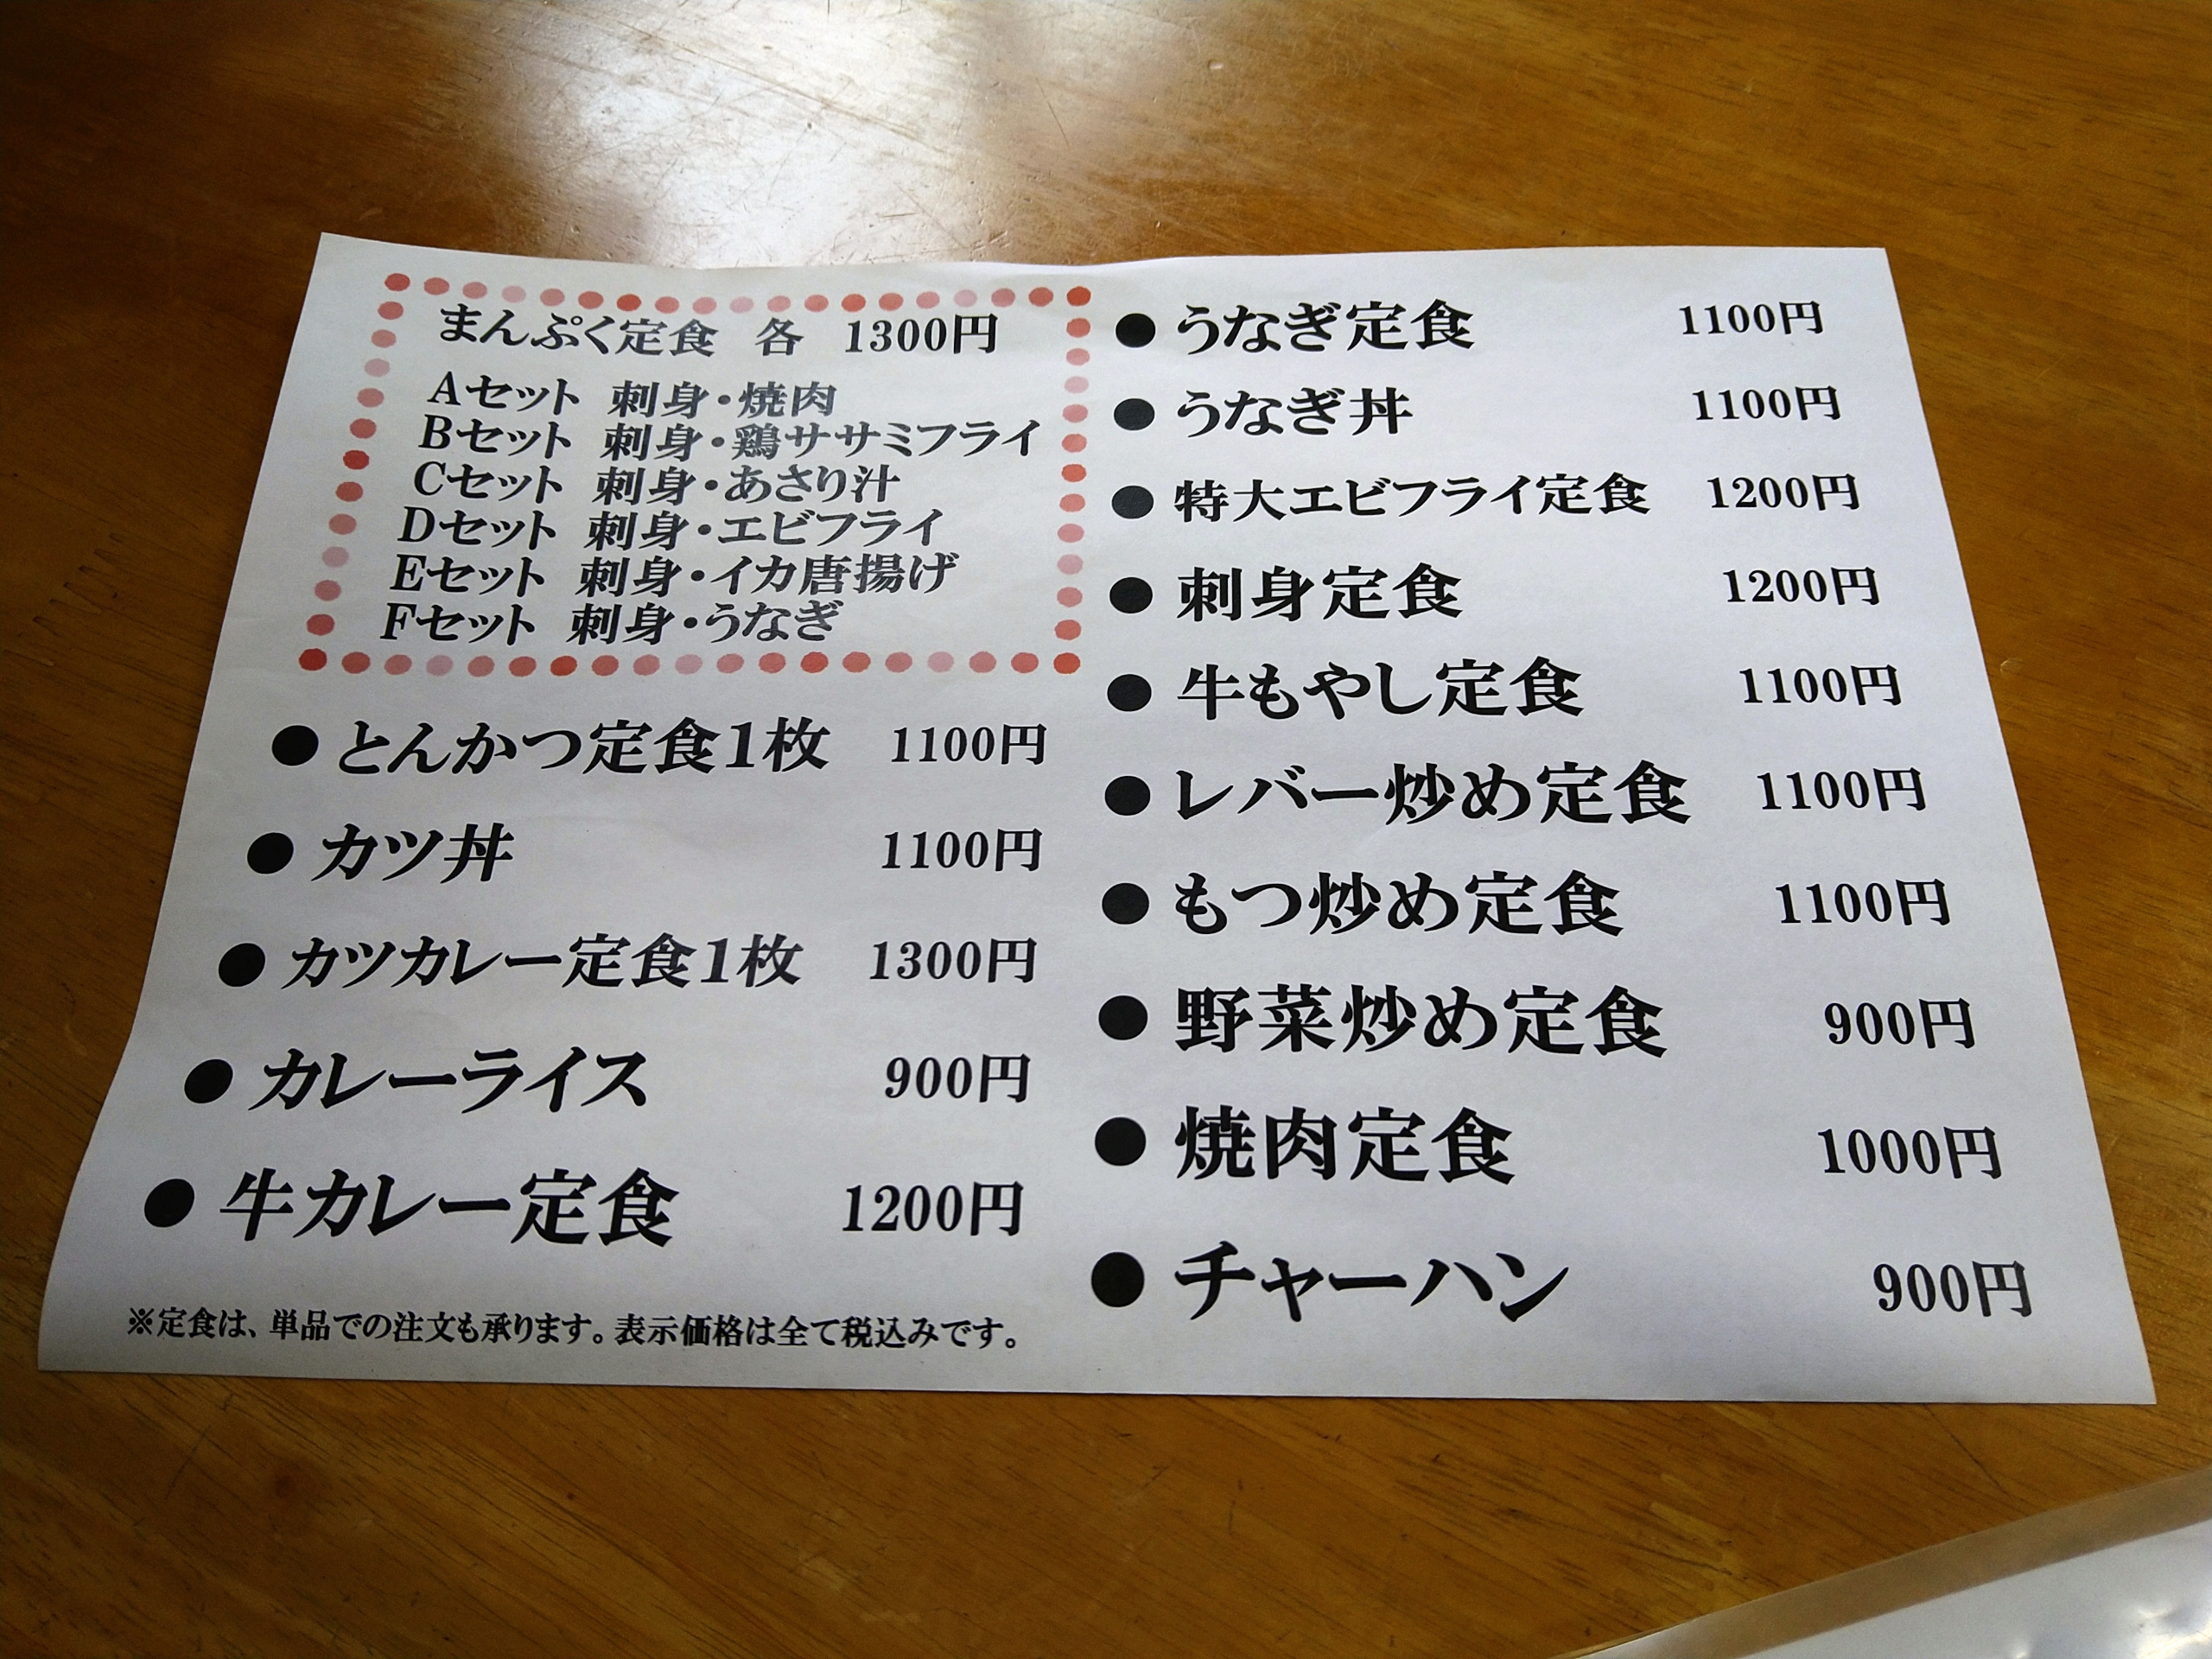 まんぷく定食 各 1300円
Aセット 刺身・焼肉
Bセット 刺身・鶏ササミフライ
Cセット 刺身・あさり汁
Dセット 刺身・エビフライ
Eセット 刺身・イカ唐揚げ
Fセット 刺身・うなぎ
●とんかつ定食1枚 1100円
●カツ丼 1100円
●カツカレー定食1枚 1300円
●カレーライス 900円
●牛カレー定食 1200円
※定食は、単品での注文も承ります。表示価格は全て税込みです。
●うなぎ定食 1100円
●うなぎ丼 1100円
●特大エビフライ定食 1200円
●刺身定食 1200円
●牛もやし定食 1100円
●レバー炒め定食 1100円
●もつ炒め定食 1100円
●野菜炒め定食 900円
●焼肉定食 1000円
●チャーハン 900円